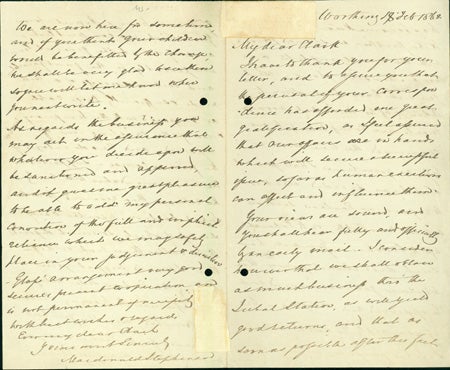 Worthing 18 Feb 1864.
My dear Clark
I have to thank you for your
letter, and to assure you that
the perusal of your Correspon
dence has afforded me great
gratification, as I feel assured
that our affairs are in hands
which will secure a successful
issue, so far as human exertions
can effect and influence them.
Your views are sound, and
you shall hear fully and officially
by an early mail - I consider
however that we shall obtain
as much business has the
Station, as will yield
good returns, and that as
soon as possible after this
We are now here for sometime
and if you think your children
would be benefitted by the change
we shall be very glad to see them
so you will let me know when
you next write.
As regards the business you
may act in the assurance that
whatever you decide upon will
be sanctioned and approved
and it gives me great pleasure
to be able to add my personal
conviction of the full and implicit
reliance which we may safely
place in your judgement & discretion
arrangement very good
secures present cooperation, and
is not permanent if
With best wishes & regards
my dear Clark
Yours most Sincerely
Macdonald Stephenson